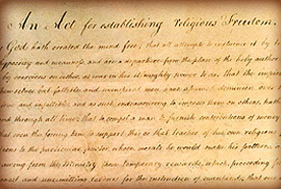 An Act for establishing religious Freedom.
God hath created the mind free; that all attempts to influence it by
hypocrisy and meanness, and are a departure from the plan of the holy author
by coercions on either, as was in his Almighty power to do, that the impious
themselves but fallible and uninspired men, have assumed dominion over
true and infallible, and as such endeavouring to impose them on others, hath
and through all time; that to compel a man to furnish contributions of money
that even the forcing him to support this or that teacher of his own religious
to the particular pastor, whose morals he would make his pattern,
from the Ministry those temporary rewards, which proceeding
and unremitting labours for the instruction of mankind; that our